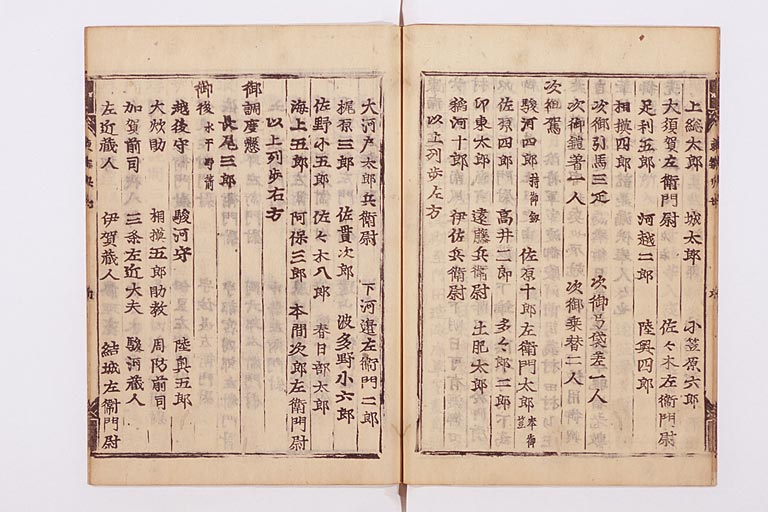 上総太郎 城太郎 小笠原六郎
大須賀左衛門尉 佐々木左衛門尉
足利五郎 河越二郎 陸奥四郎
相模四郎
次御引馬三疋 次御弓袋差一人
次御鎧著一人 次御乗替二人
次御駕
駿河四郎 持御剱 佐原十郎左衛門太郎 奉御笠
佐原四郎 高井二郎 多々郎二郎
印東太郎 遠藤兵衛尉 土肥太郎
鵜河十郎 伊佐兵衛尉
以上列歩左方
大河戸太郎兵衛尉 下河邊左衛門二郎
梶原三郎 佐貫次郎 波多野小六郎
佐野小五郎 佐々木八郎 春日部太郎
海上五郎 阿保三郎 本間次郎左衛門尉
以上列歩右方
御調度懸
長尾三郎
御後 水干野箭
越後守 駿河守 陸奥五郎
大炊助 相模五郎 助教 周防前司
加賀前司 三条左近大夫 駿河蔵人
左近蔵人 伊賀蔵人 結城左衛門尉